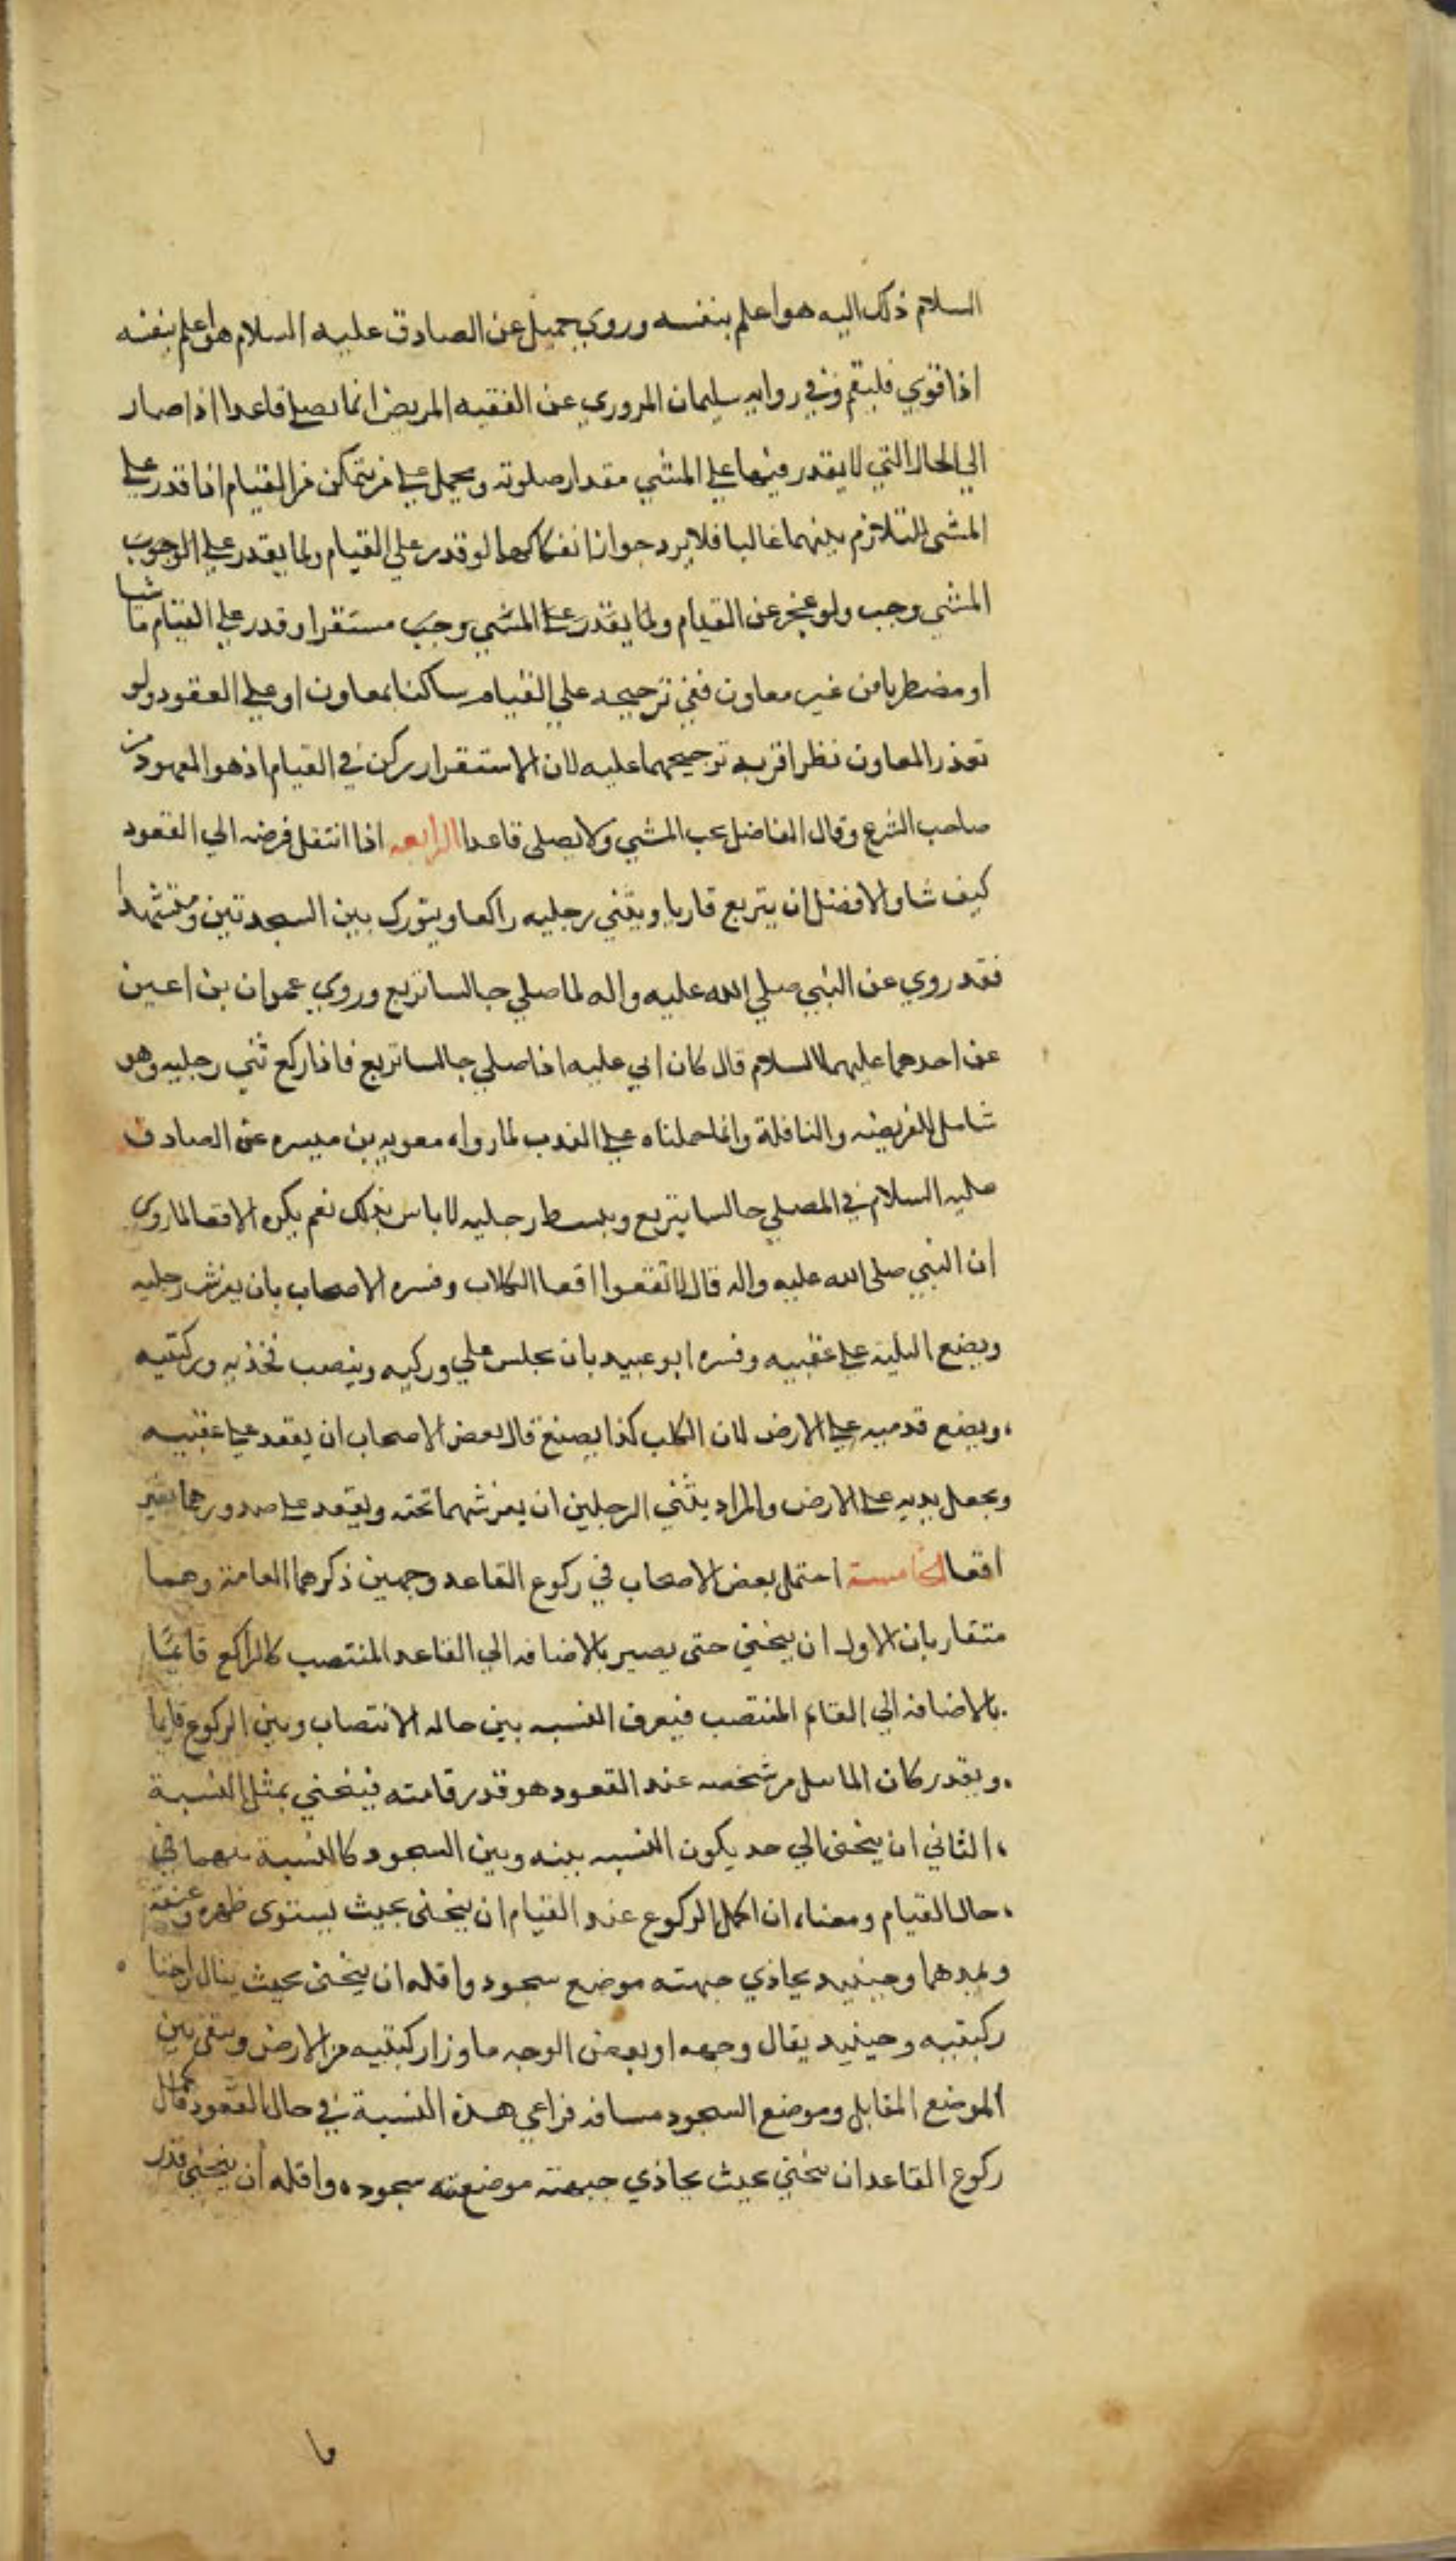 السلام ذلك اليه هو اعلم بنفسه وروي جميل عن الصادق عليه السلام هو اعلم بنفسه
اذا قوي فليقم وفي روايه سليمان المروري عن الفقيه المريض انما يصلي قاعدا اذا صار
الي الحال التي لا يقدر فيها علي المشي مقدار صلوته ويحمل علي من يتمكن من القيام اذا قدر علي
المشي للتلازم بينهما غالبا فلا يرد جواز انفكاكهما لو قدر علي القيام ولما يقدر علي الوجوب
المشي وجب ولو عجز عن القيام ولما يقدر علي المشي وجب مستقرا وقدر علي القيام ماشيا
او مضطربا من غير معاون ففي ترجيحه علي القيام ساكنا بمعاون او علي العقود ولو
تعذر المعاون نظر اقربه ترجيحهما عليه لان الاستقرار ركن في القيام اذ هو المعهود من
صاحب الشرع وقال الفاضل يجب المشي ولا يصلي قاعدا الرابعه اذا انتقل فرضه الي القعود
كيف شا والافضل ان يتربع قاريا ويثني رجليه راكعا ويتورك بين السجدتين ومتشهدا
فقد روي عن النبي صلي الله عليه واله لما صلي جالسا تربع وروي عمران بن اعين
عن احدهما عليهما السلام قال كان ابي عليه اذا صلي جالسا تربع فاذا ركع ثني رجليه وهو
شامل للفريضه والنافلة وانما حملناه علي الندب لما رواه معويه بن ميسره عن الصادق
عليه السلام في المصلي جالسا يتربع ويبسط رجليه لا باس بذلك نعم يكره الاقعا لما روي
ان النبي صلي الله عليه واله قال لا تقعوا اقعا الكلاب وفسره الاصحاب بان يفرش رجليه
ويضع اليتيه علي عقبيه وفسره ابو عبيد بان يجلس علي وركيه وينصب فخذيه وركبتيه
ويضع قدميه علي الارض لان الكلب كذا يصنع قال بعض الاصحاب ان يقعد علي عقبيه
ويجعل يديه علي الارض والمراد بثني الرجلين ان يفرشهما تحته ويقعد علي صدورهما بغير
اقعا الخامسة احتمل بعض الاصحاب في ركوع القاعد وجهين ذكرهما العامة وهما
متقاربان الاول ان ينحني حتي يصير بالاضافه الي القاعد المنتصب كالراكع قائمًا
بالاضافه الي القائم المنتصب فيعرف النسبه بين حاله الانتصاب وبين الركوع قايما
ويقدر كان الماىل من شخصه عند القعود هو قدر قامته فينحني بمثل النسبة
الثاني ان ينحني الي حد يكون النسبه بينه وبين السجود كالنسبة بينهما في
حال القيام ومعناه ان اكمل الركوع عند القيام ان ينحني بحيث يستوي ظهره وعنقه
ويمدهما وحينيد يحاذي جبهته موضع سجود واقله ان ينحني بحيث ينال راحتا
ركبتيه وحينيد يقال وجهه او بعض الوجه ما وزا ركبتيه من الارض ويبقي بين
الموضع المقابل وموضع السجود مسافه فراعي هذه النسبة في حال القعود فاكمل
ركوع القاعد ان ينحني بحيث يحاذي جبهته موضع سجوده واقله ان ينحني قدر
ما